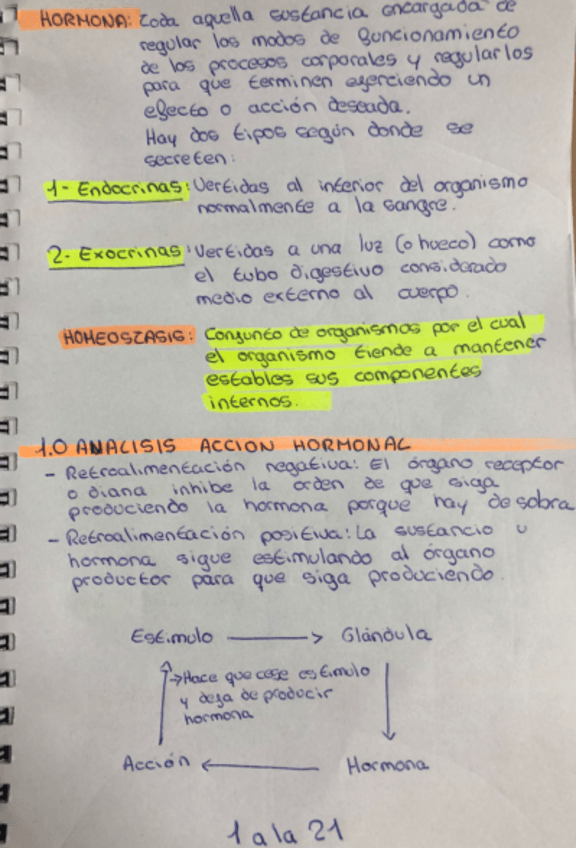 HORMONA: Toda aquella sustancia encargada de
regular los modos de funcionamiento
de los procesos corporales y regularlos
para que terminen ejerciendo un
efecto o acción deseada.
Hay dos tipos según donde se
secreten:
1- Endocrinas: Vertidas al interior del organismo
normalmente a la sangre.
2- Exocrinas: Vertidas a una luz (o hueco) como
el tubo digestivo considerado
medio externo al cuerpo.
HOMEOSTASIS: Conjunto de organismos por el cual
el organismo tiende a mantener
estables sus componentes
internos.
1.0 ANALISIS ACCION HORMONAL
- Retroalimentación negativa: El órgano receptor
o diana inhibe la orden de que siga
produciendo la hormona porque hay de sobra
- Retroalimentación positiva: La sustancia u
hormona sigue estimulando al órgano
productor para que siga produciendo.
Estimulo → Glándula
→ Hace que cese estimulo
y deja de producir
hormona
Acción ← Hormona
1 a la 21